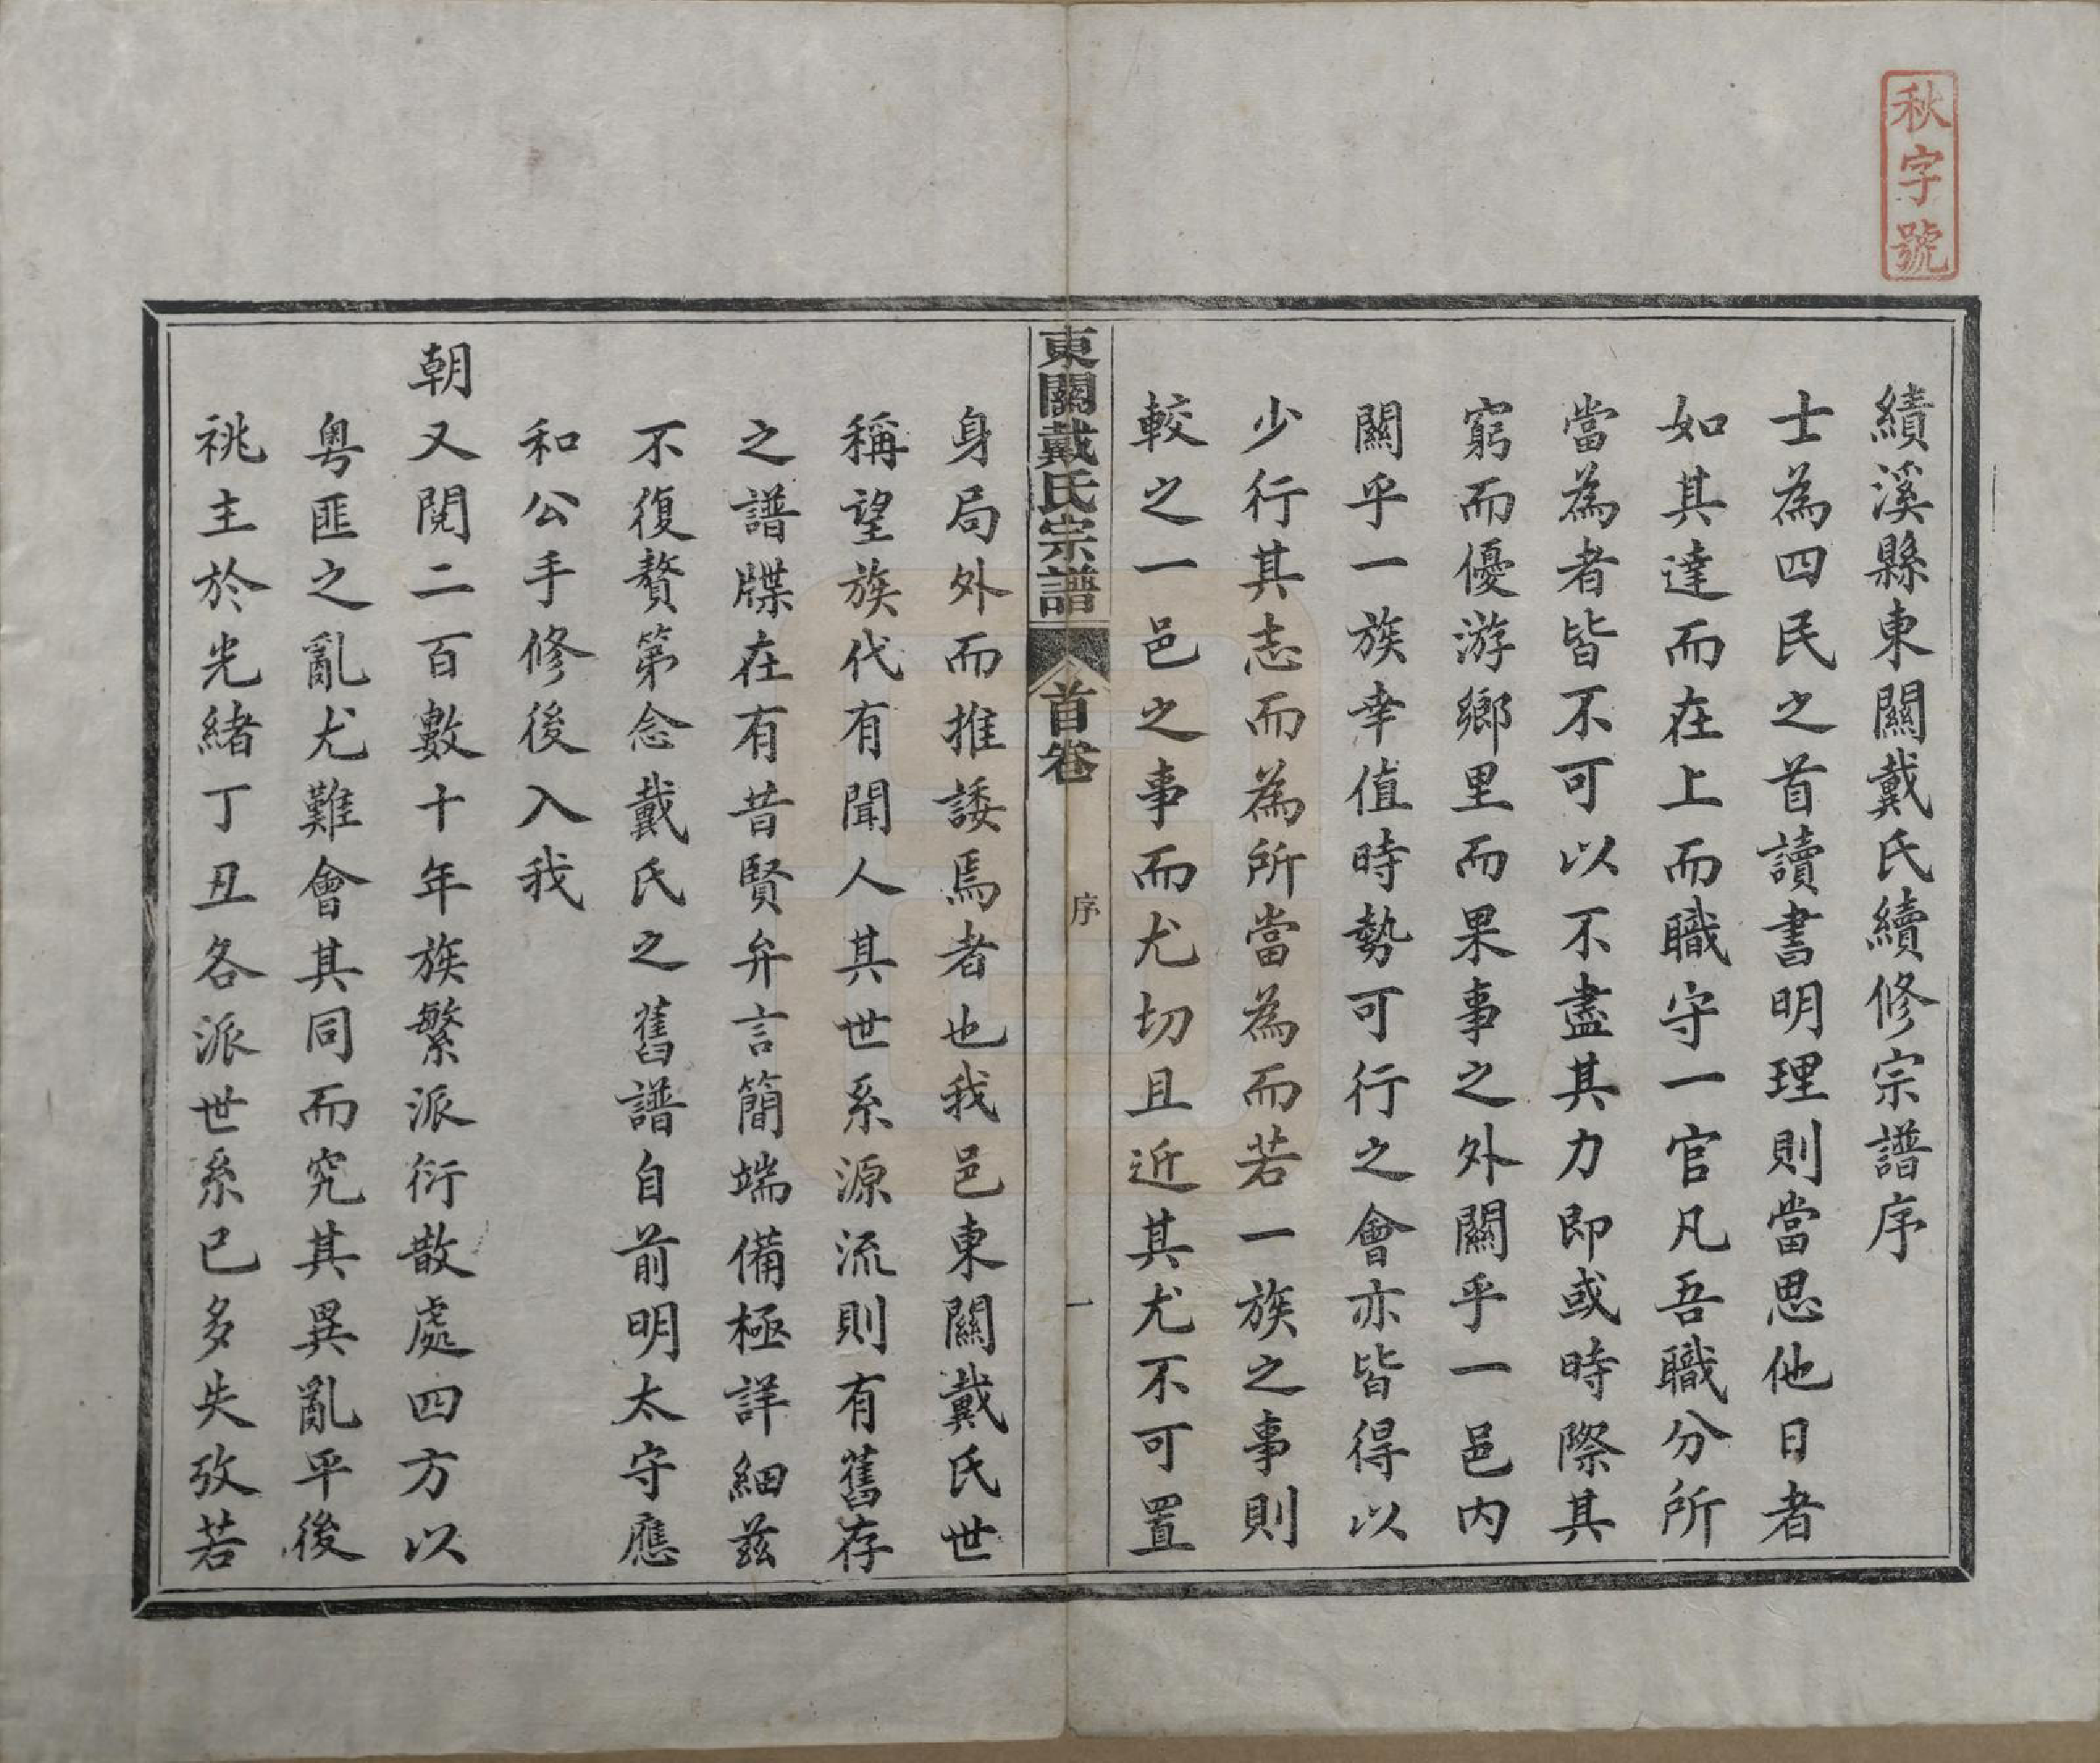 秋字號
績溪縣東關戴氏續修宗譜序
士為四民之首讀書明理則當思他日者
如其達而在上而職守一官凡吾職分所
當為者皆不可以不盡其力即或時際其
窮而優游鄉里而果事之外關乎一邑內
關乎一族幸值時勢可行之會亦皆得以
少行其志而為所當為而若一族之事則
較之一邑之事而尤切且近其尤不可置
東關戴氏宗譜 首卷 序 一
身局外而推諉焉者也我邑東關戴氏世
稱望族代有聞人其世系源流則有舊存
之譜牒在有昔賢弁言簡端備極詳細茲
不復贅第念戴氏之舊譜自前明太守應
和公手修後入我
朝又閱二百數十年族繁派衍散處四方以
粵匪之亂尤難會其同而究其異亂平後
祧主於光緒丁丑各派世系已多失攷若